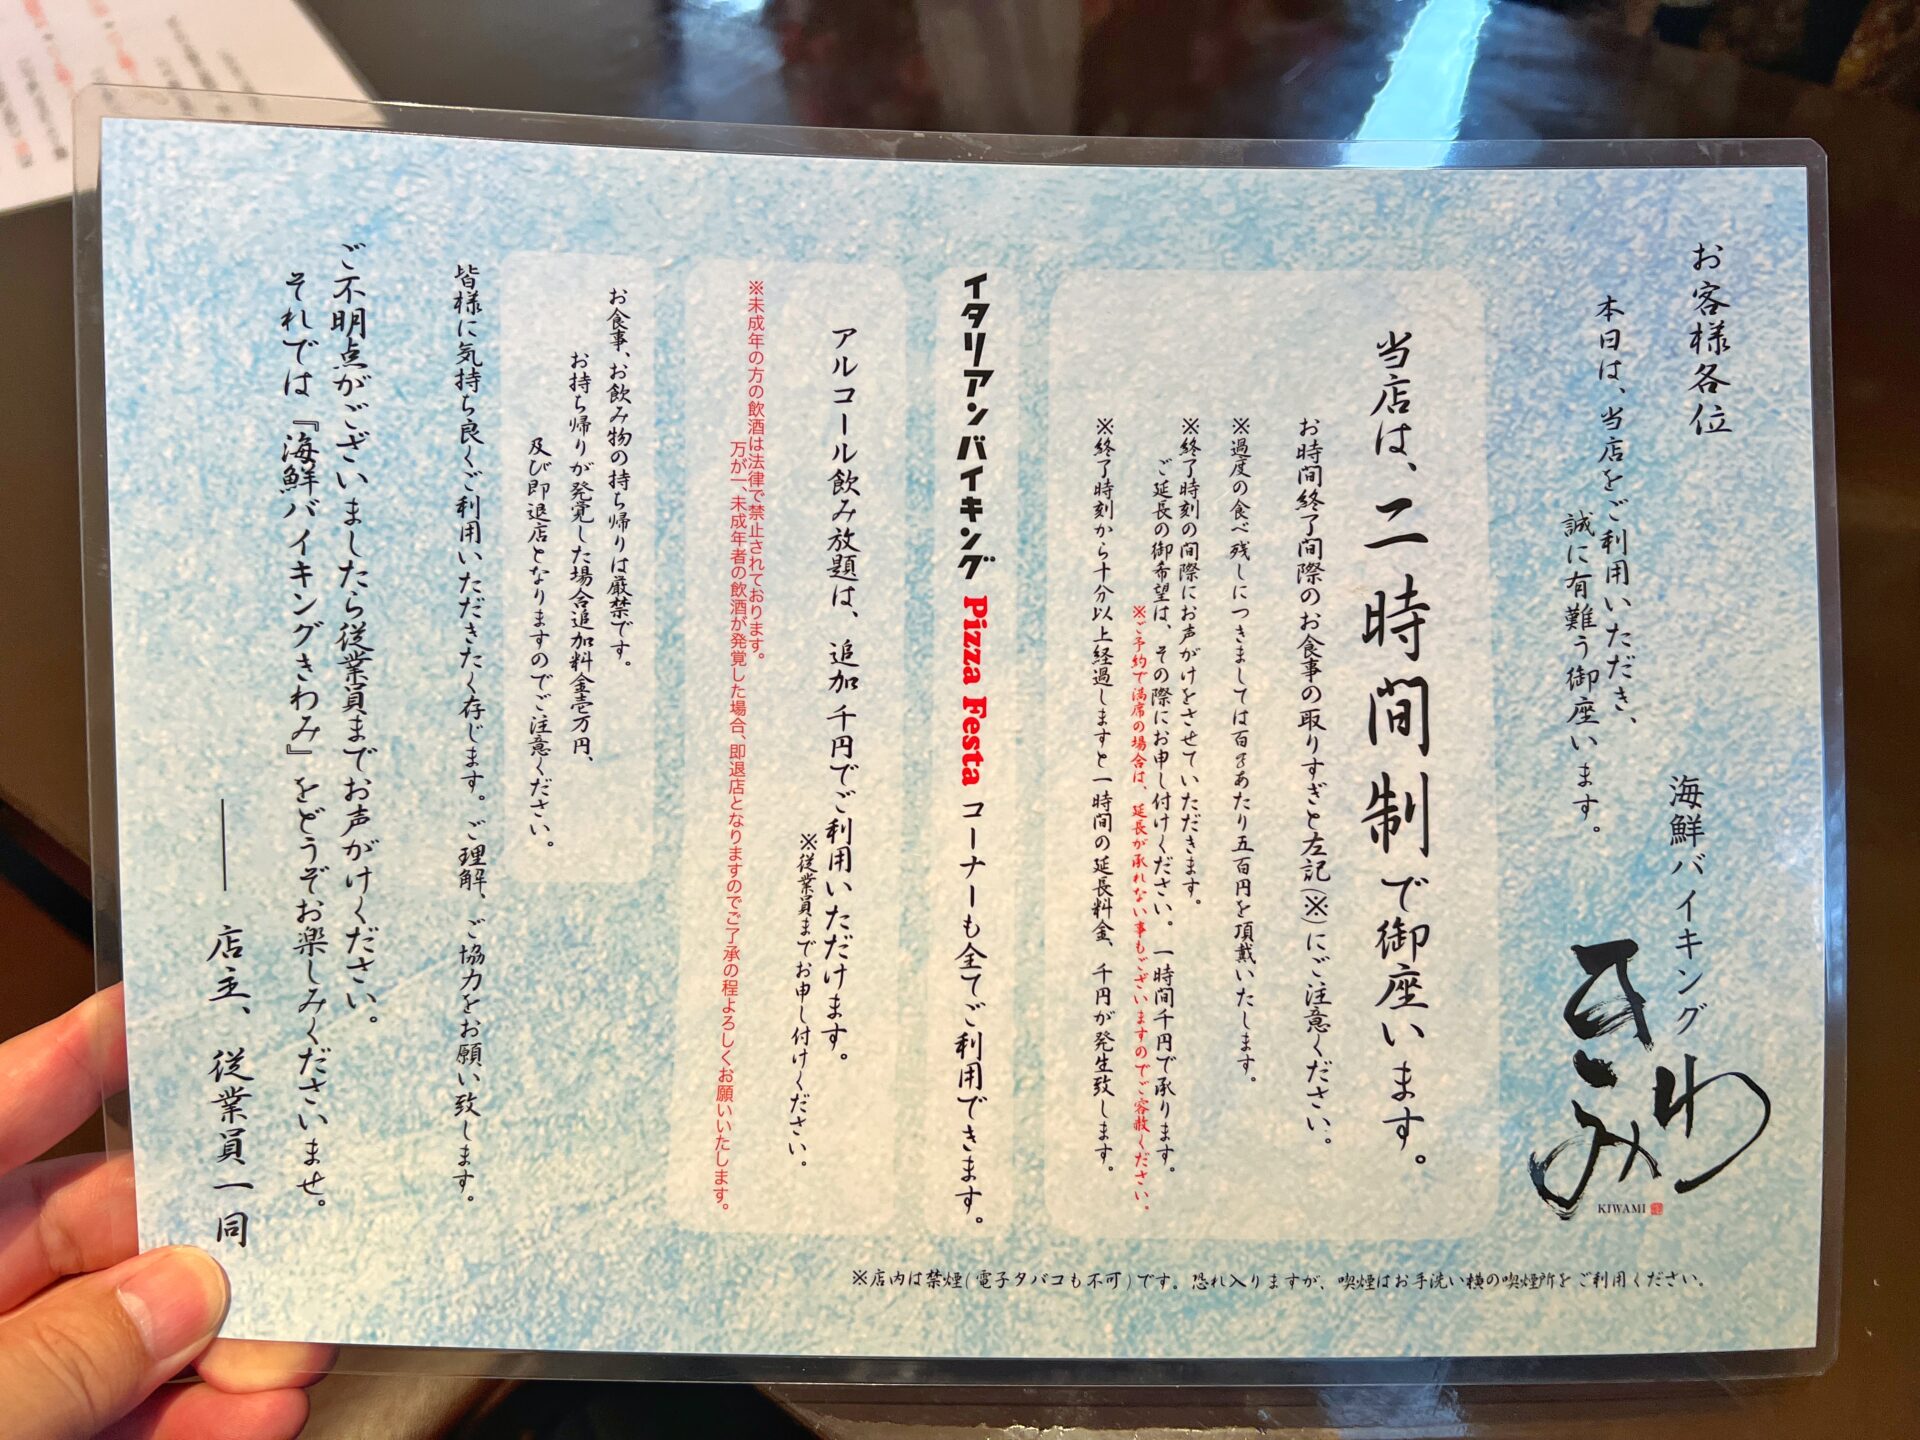 お客様各位
海鮮バイキング
きわみ
KIWAMI
本日は、当店をご利用いただき、
誠に有難う御座います。
当店は、二時間制で御座います。
お時間終了間際のお食事の取りすぎと左記(※)にご注意ください。
※過度の食べ残しにつきましては百gあたり五百円を頂戴いたします。
※終了時刻の間際にお声がけをさせていただきます。
ご延長の御希望は、その際にお申し付けください。一時間千円で承ります。
※ご予約で満席の場合は、延長が承れない事もございますのでご容赦ください。
※終了時刻から十分以上経過しますと一時間の延長料金、千円が発生致します。
イタリアンバイキング Pizza Festa コーナーも全てご利用できます。
アルコール飲み放題は、追加千円でご利用いただけます。
※従業員までお申し付けください。
※未成年の方の飲酒は法律で禁止されております。
万が一、未成年者の飲酒が発覚した場合、即退店となりますのでご了承の程よろしくお願いいたします。
お食事、お飲み物の持ち帰りは厳禁です。
お持ち帰りが発覚した場合追加料金壱万円、
及び即退店となりますのでご注意ください。
皆様に気持ち良くご利用いただきたく存じます。ご理解、ご協力をお願い致します。
ご不明点がございましたら従業員までお声がけください。
それでは『海鮮バイキングきわみ』をどうぞお楽しみくださいませ。
―― 店主、従業員一同
※店内は禁煙(電子タバコも不可)です。恐れ入りますが、喫煙はお手洗い横の喫煙所をご利用ください。